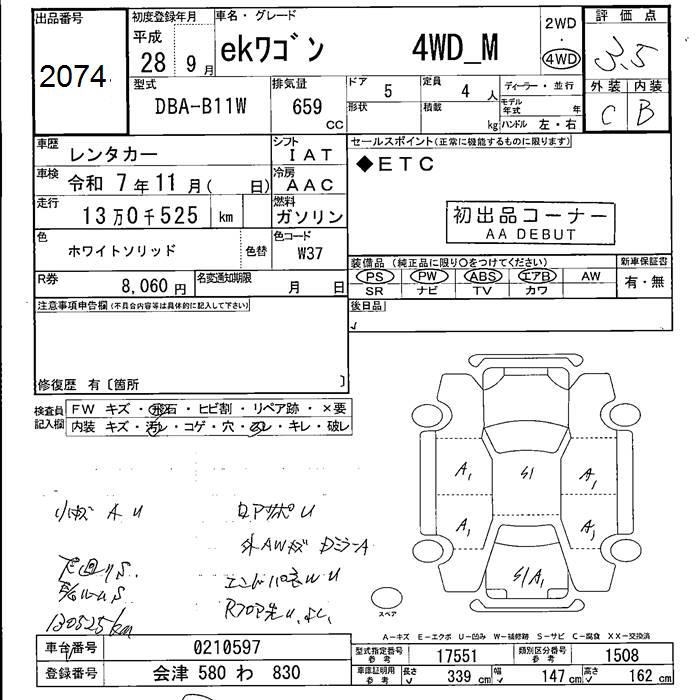 出品番号
2074
初度登録年月
平成
28 9月
車名・グレード
ekワゴン 4WD_M
2WD
・
4WD
評価点
3.5
外装 内装
C B
型式
DBA-B11W
排気量
659
CC
ドア 5
形状
定員 4 人
積載 kg
ディーラー・並行
モデル年式 年
ハンドル 左・右
車歴 レンタカー
シフト IAT
車検 令和 7年11月( 日)
冷房 AAC
走行 13万0千525 km
燃料 ガソリン
色 ホワイトソリッド 色替
色コード W37
R券 8,060円
名変通知期限 月 日
セールスポイント(正常に機能するものに限ります)
◆ETC
初出品コーナー
AA DEBUT
装備品(純正品に限り○をつけてください)
PS PW ABS エアB AW
SR ナビ TV カワ
新車保証書
有・無
後日品
注意事項申告欄(不具合内容等は具体的に記入して下さい)
修復歴 有〔箇所 〕
検査員記入欄
FW キズ・飛石・ヒビ割・リペア跡・×要
内装 キズ・汚レ・コゲ・穴・スレ・キレ・破レ
小キズ A U
ロアサポ U
外AWキズ DミラーA
エンドパネ W U
130525km
A1 S1 A1
A1 A1
S1A1
スペア
A-キズ E-エクボ U-凹み W-補修跡 S-サビ C-腐食 XX-交換済
車台番号 0210597
登録番号 会津 580 わ 830
型式指定番号 参考 17551
類別区分番号 参考 1508
車庫証明用 参考 長さ 339 cm 幅 147 cm 高さ 162 cm